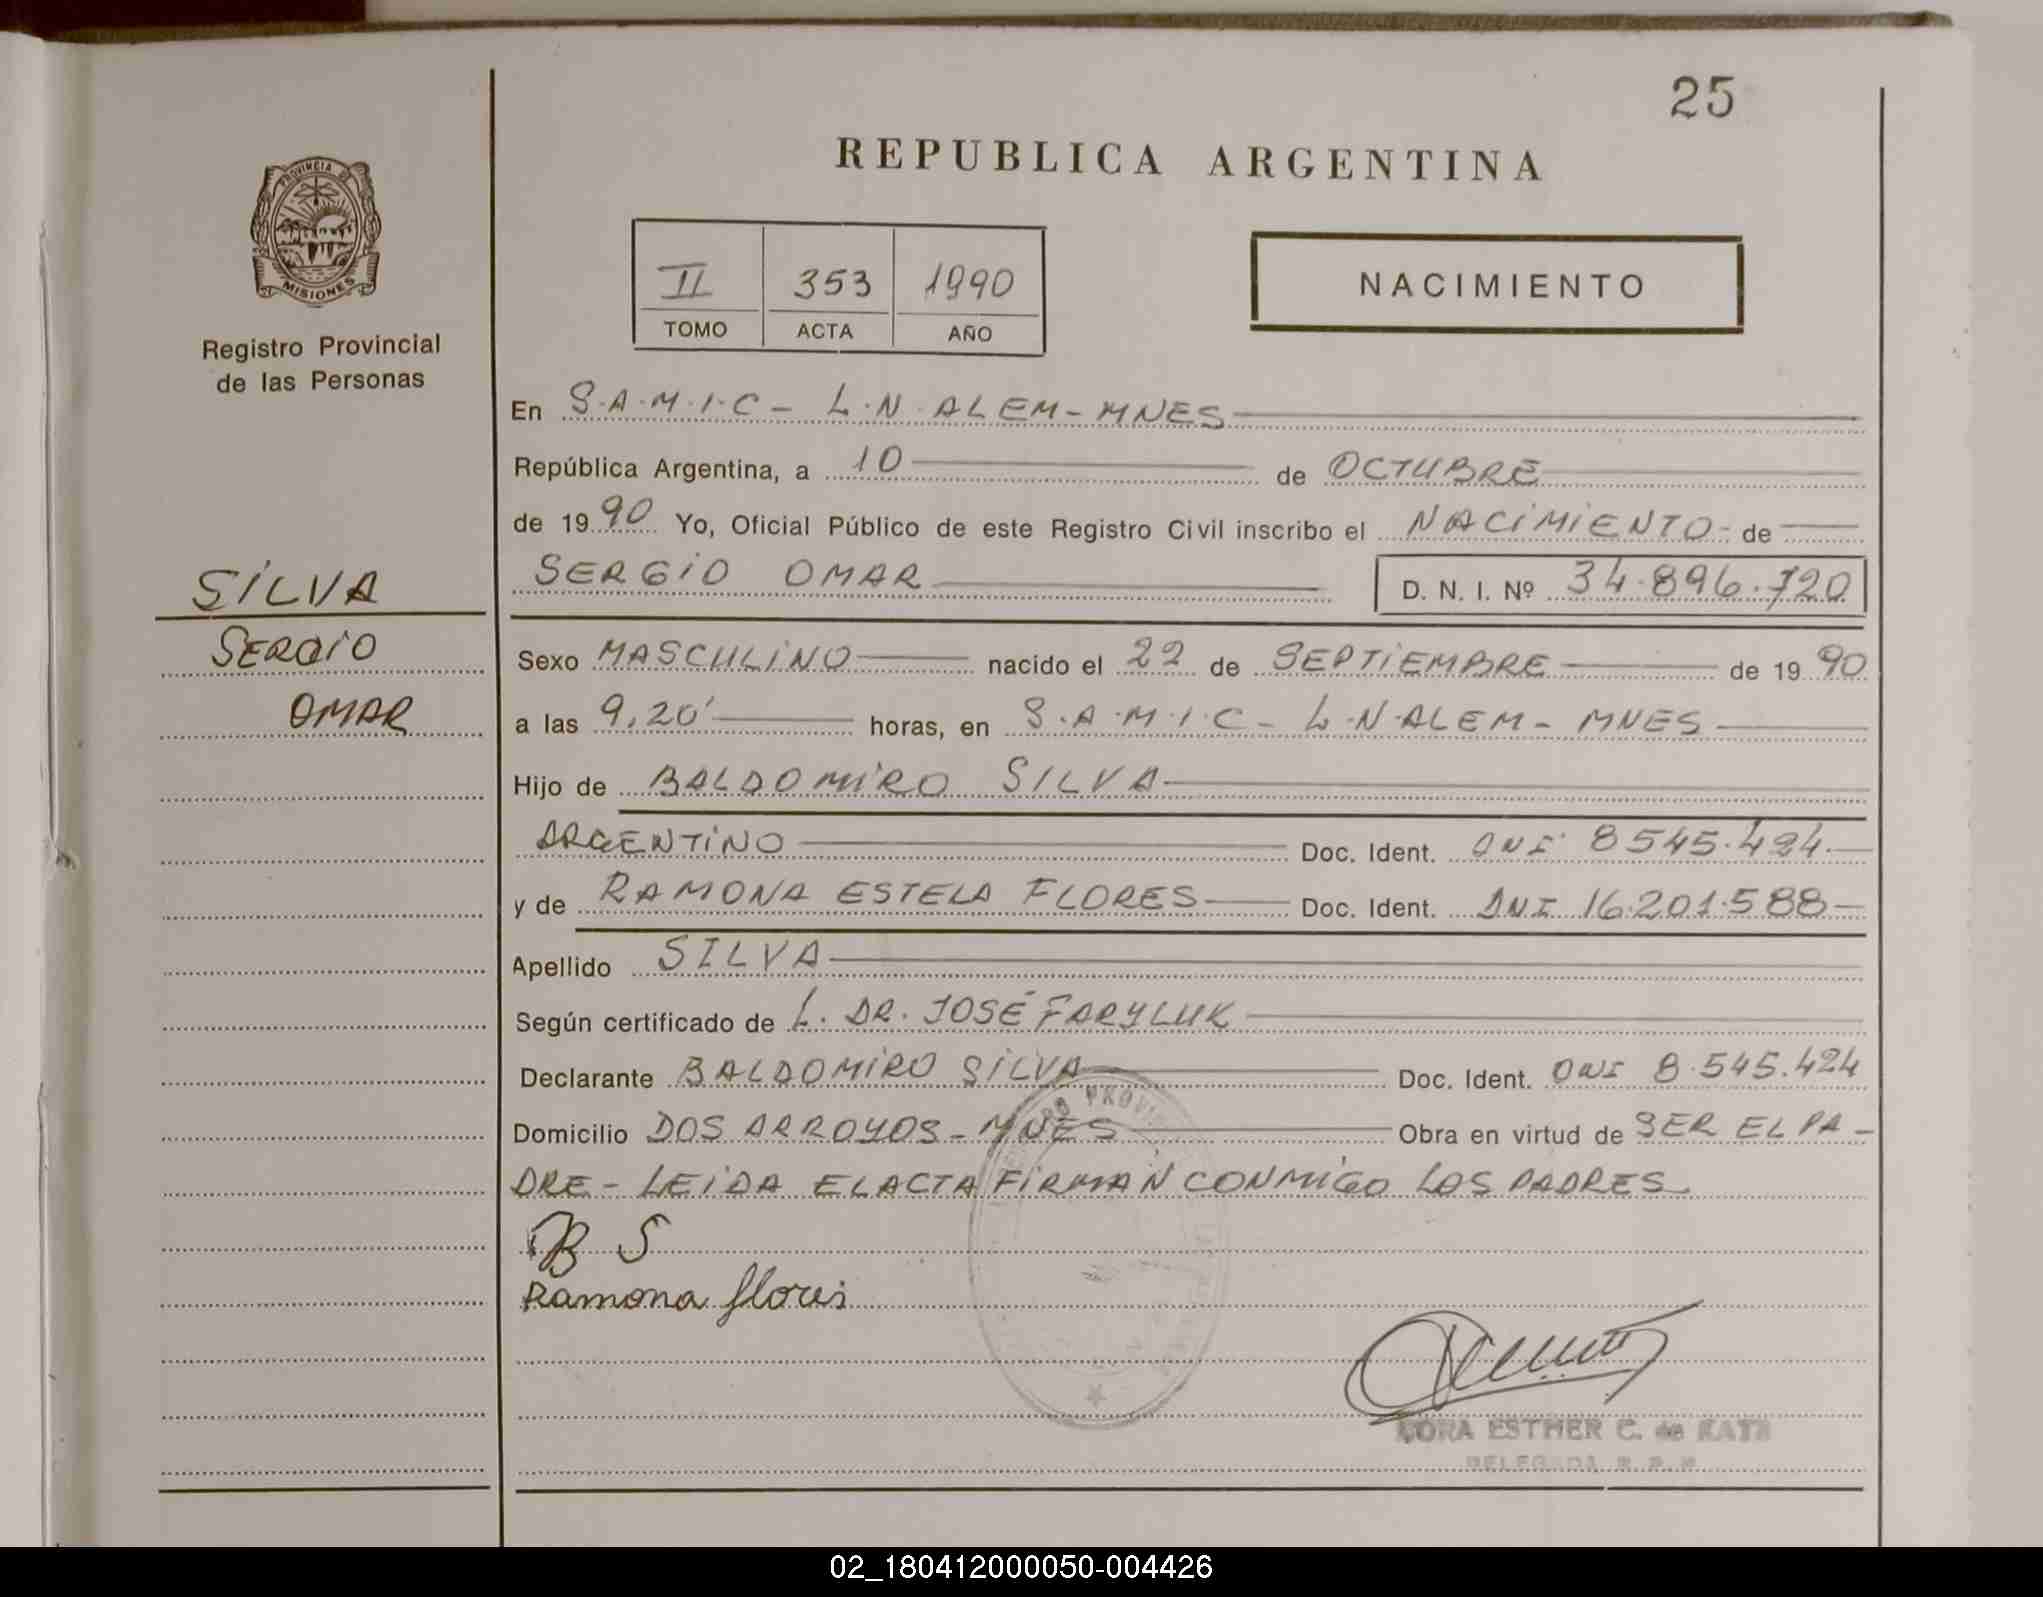 25
REPUBLICA ARGENTINA
PROVINCIA DE
MISIONES
Registro Provincial
de las Personas
II 353 1990
TOMO ACTA AÑO
NACIMIENTO
En S.A.M.I.C - L.N. ALEM - MNES
República Argentina, a 10 de OCTUBRE
de 1990 Yo, Oficial Público de este Registro Civil inscribo el NACIMIENTO de
SERGIO OMAR D. N. I. Nº 34.896.720
SILVA
SERGIO
OMAR
Sexo MASCULINO nacido el 22 de SEPTIEMBRE de 1990
a las 9,20' horas, en S.A.M.I.C - L.N. ALEM - MNES
Hijo de BALDOMIRO SILVA
ARGENTINO Doc. Ident. DNI 8545.424
y de RAMONA ESTELA FLORES Doc. Ident. DNI 16.201.588
Apellido SILVA
Según certificado de L. DR. JOSÉ FARYLUK
Declarante BALDOMIRO SILVA Doc. Ident. DNI 8.545.424
Domicilio DOS ARROYOS - MNES Obra en virtud de SER EL PA-
DRE - LEIDA EL ACTA FIRMAN CONMIGO LOS PADRES
B S
Ramona flores
ESTHER C. de KATZ
DELEGADA R. P. P.
02_180412000050-004426